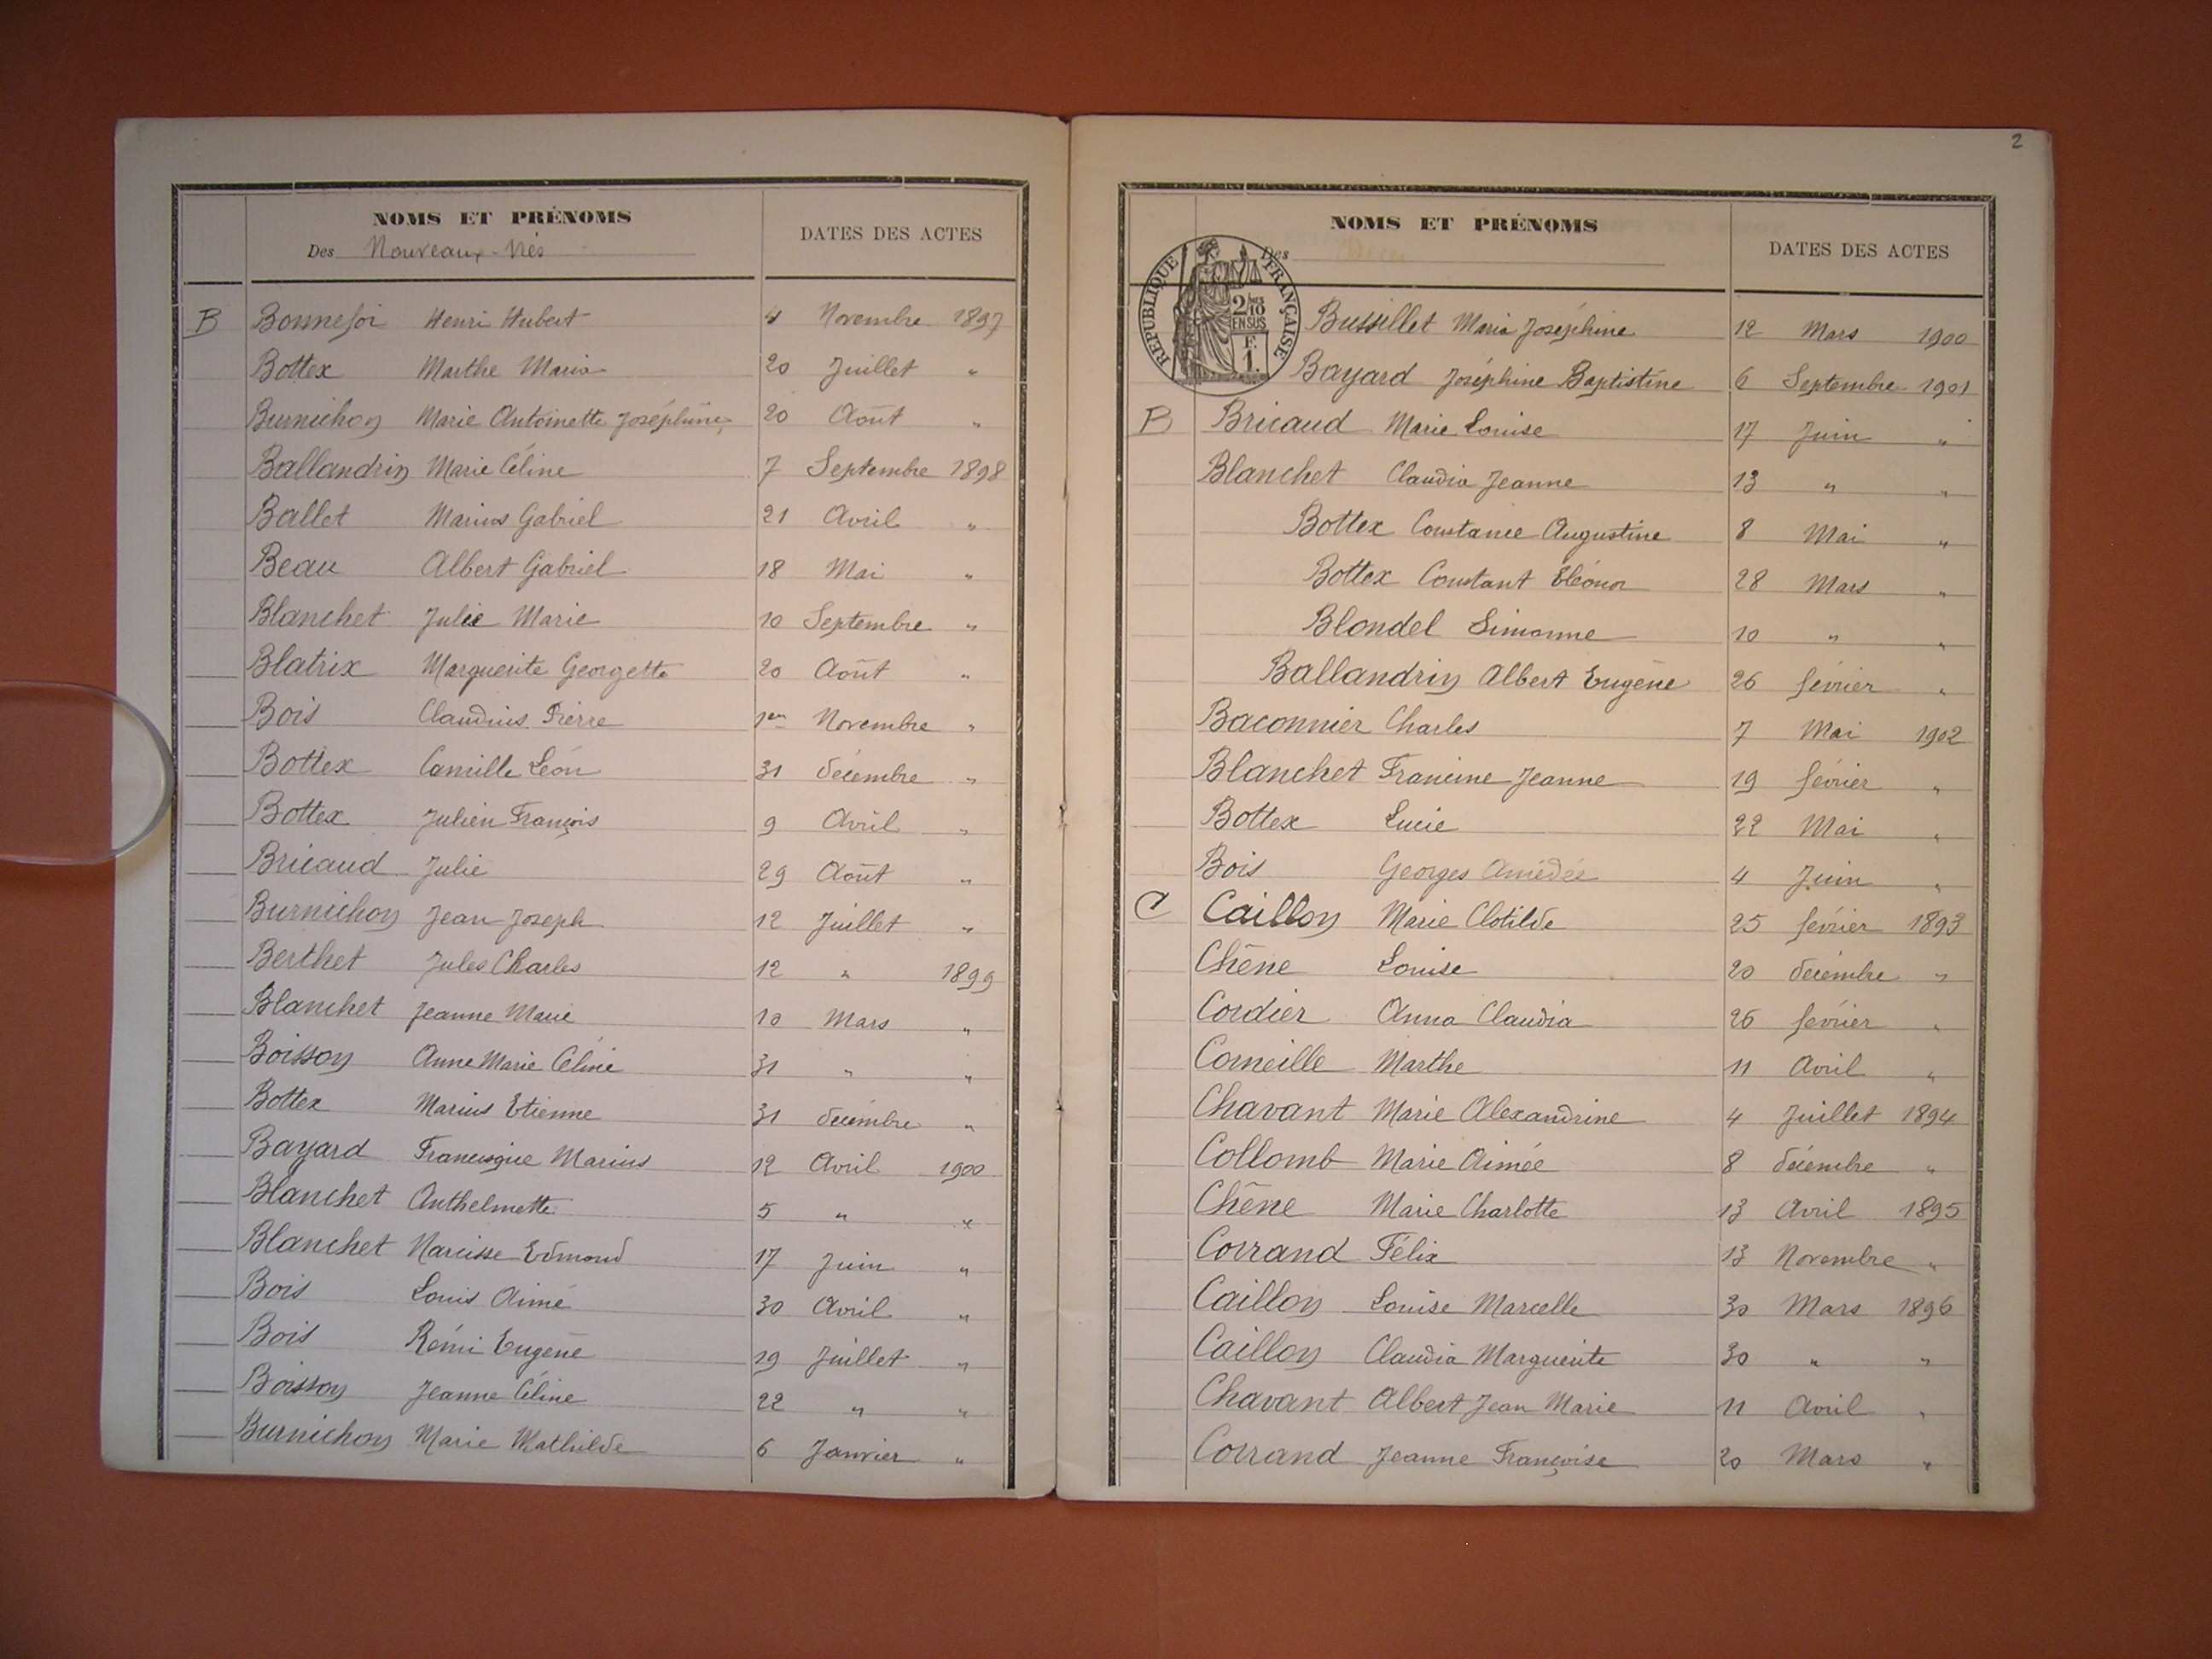 NOMS ET PRÉNOMS
Des Nouveaux-Nés
DATES DES ACTES
B Bonnefoi Henri Hubert 4 Novembre 1897
Bottex Marthe Maria 20 Juillet "
Burnichon Marie Antoinette Joséphine 20 Août "
Ballandrin Marie Céline 7 Septembre 1898
Ballet Marius Gabriel 21 Avril "
Beau Albert Gabriel 18 Mai "
Blanchet Julie Marie 10 Septembre "
Blatrix Marguerite Georgette 20 Août "
Bois Claudius Pierre 1er Novembre "
Bottex Camille Léon 31 décembre "
Bottex Julien François 9 Avril "
Bricaud Julie 29 Août "
Burnichon Jean Joseph 12 Juillet "
Berthet Jules Charles 12 " 1899
Blanchet Jeanne Marie 10 Mars "
Boisson Anne Marie Céline 31 " "
Bottex Marius Etienne 31 décembre "
Bayard Francisque Marius 12 Avril 1900
Blanchet Anthelmette 5 " "
Blanchet Narcisse Edmond 17 Juin "
Bois Louis Aimé 30 Avril "
Bois Rémi Eugène 19 Juillet "
Boisson Jeanne Céline 22 " "
Burnichon Marie Mathilde 6 Janvier "
2
NOMS ET PRÉNOMS
Des
DATES DES ACTES
RÉPUBLIQUE FRANÇAISE
2/10 EN SUS
F. 1.
Bussillet Maria Joséphine 12 Mars 1900
Bayard Joséphine Baptistine 6 Septembre 1901
B Bricaud Marie Louise 17 Juin "
Blanchet Claudia Jeanne 13 " "
Bottex Constance Augustine 8 Mai "
Bottex Constant Eléonor 28 Mars "
Blondel Simonne 10 " "
Ballandrin Albert Eugène 26 février "
Baconnier Charles 7 Mai 1902
Blanchet Francine Jeanne 19 février "
Bottex Lucie 22 Mai "
Bois Georges Amédée 4 Juin "
C Caillon Marie Clotilde 25 février 1893
Chêne Louise 20 décembre "
Cordier Anna Claudia 26 février "
Corneille Marthe 11 Avril "
Chavant Marie Alexandrine 4 Juillet 1894
Collomb Marie Aimée 8 décembre "
Chêne Marie Charlotte 13 Avril 1895
Corrand Félix 13 Novembre "
Caillon Louise Marcelle 30 Mars 1896
Caillon Claudia Marguerite 30 " "
Chavant Albert Jean Marie 11 Avril "
Corrand Jeanne Françoise 20 Mars "